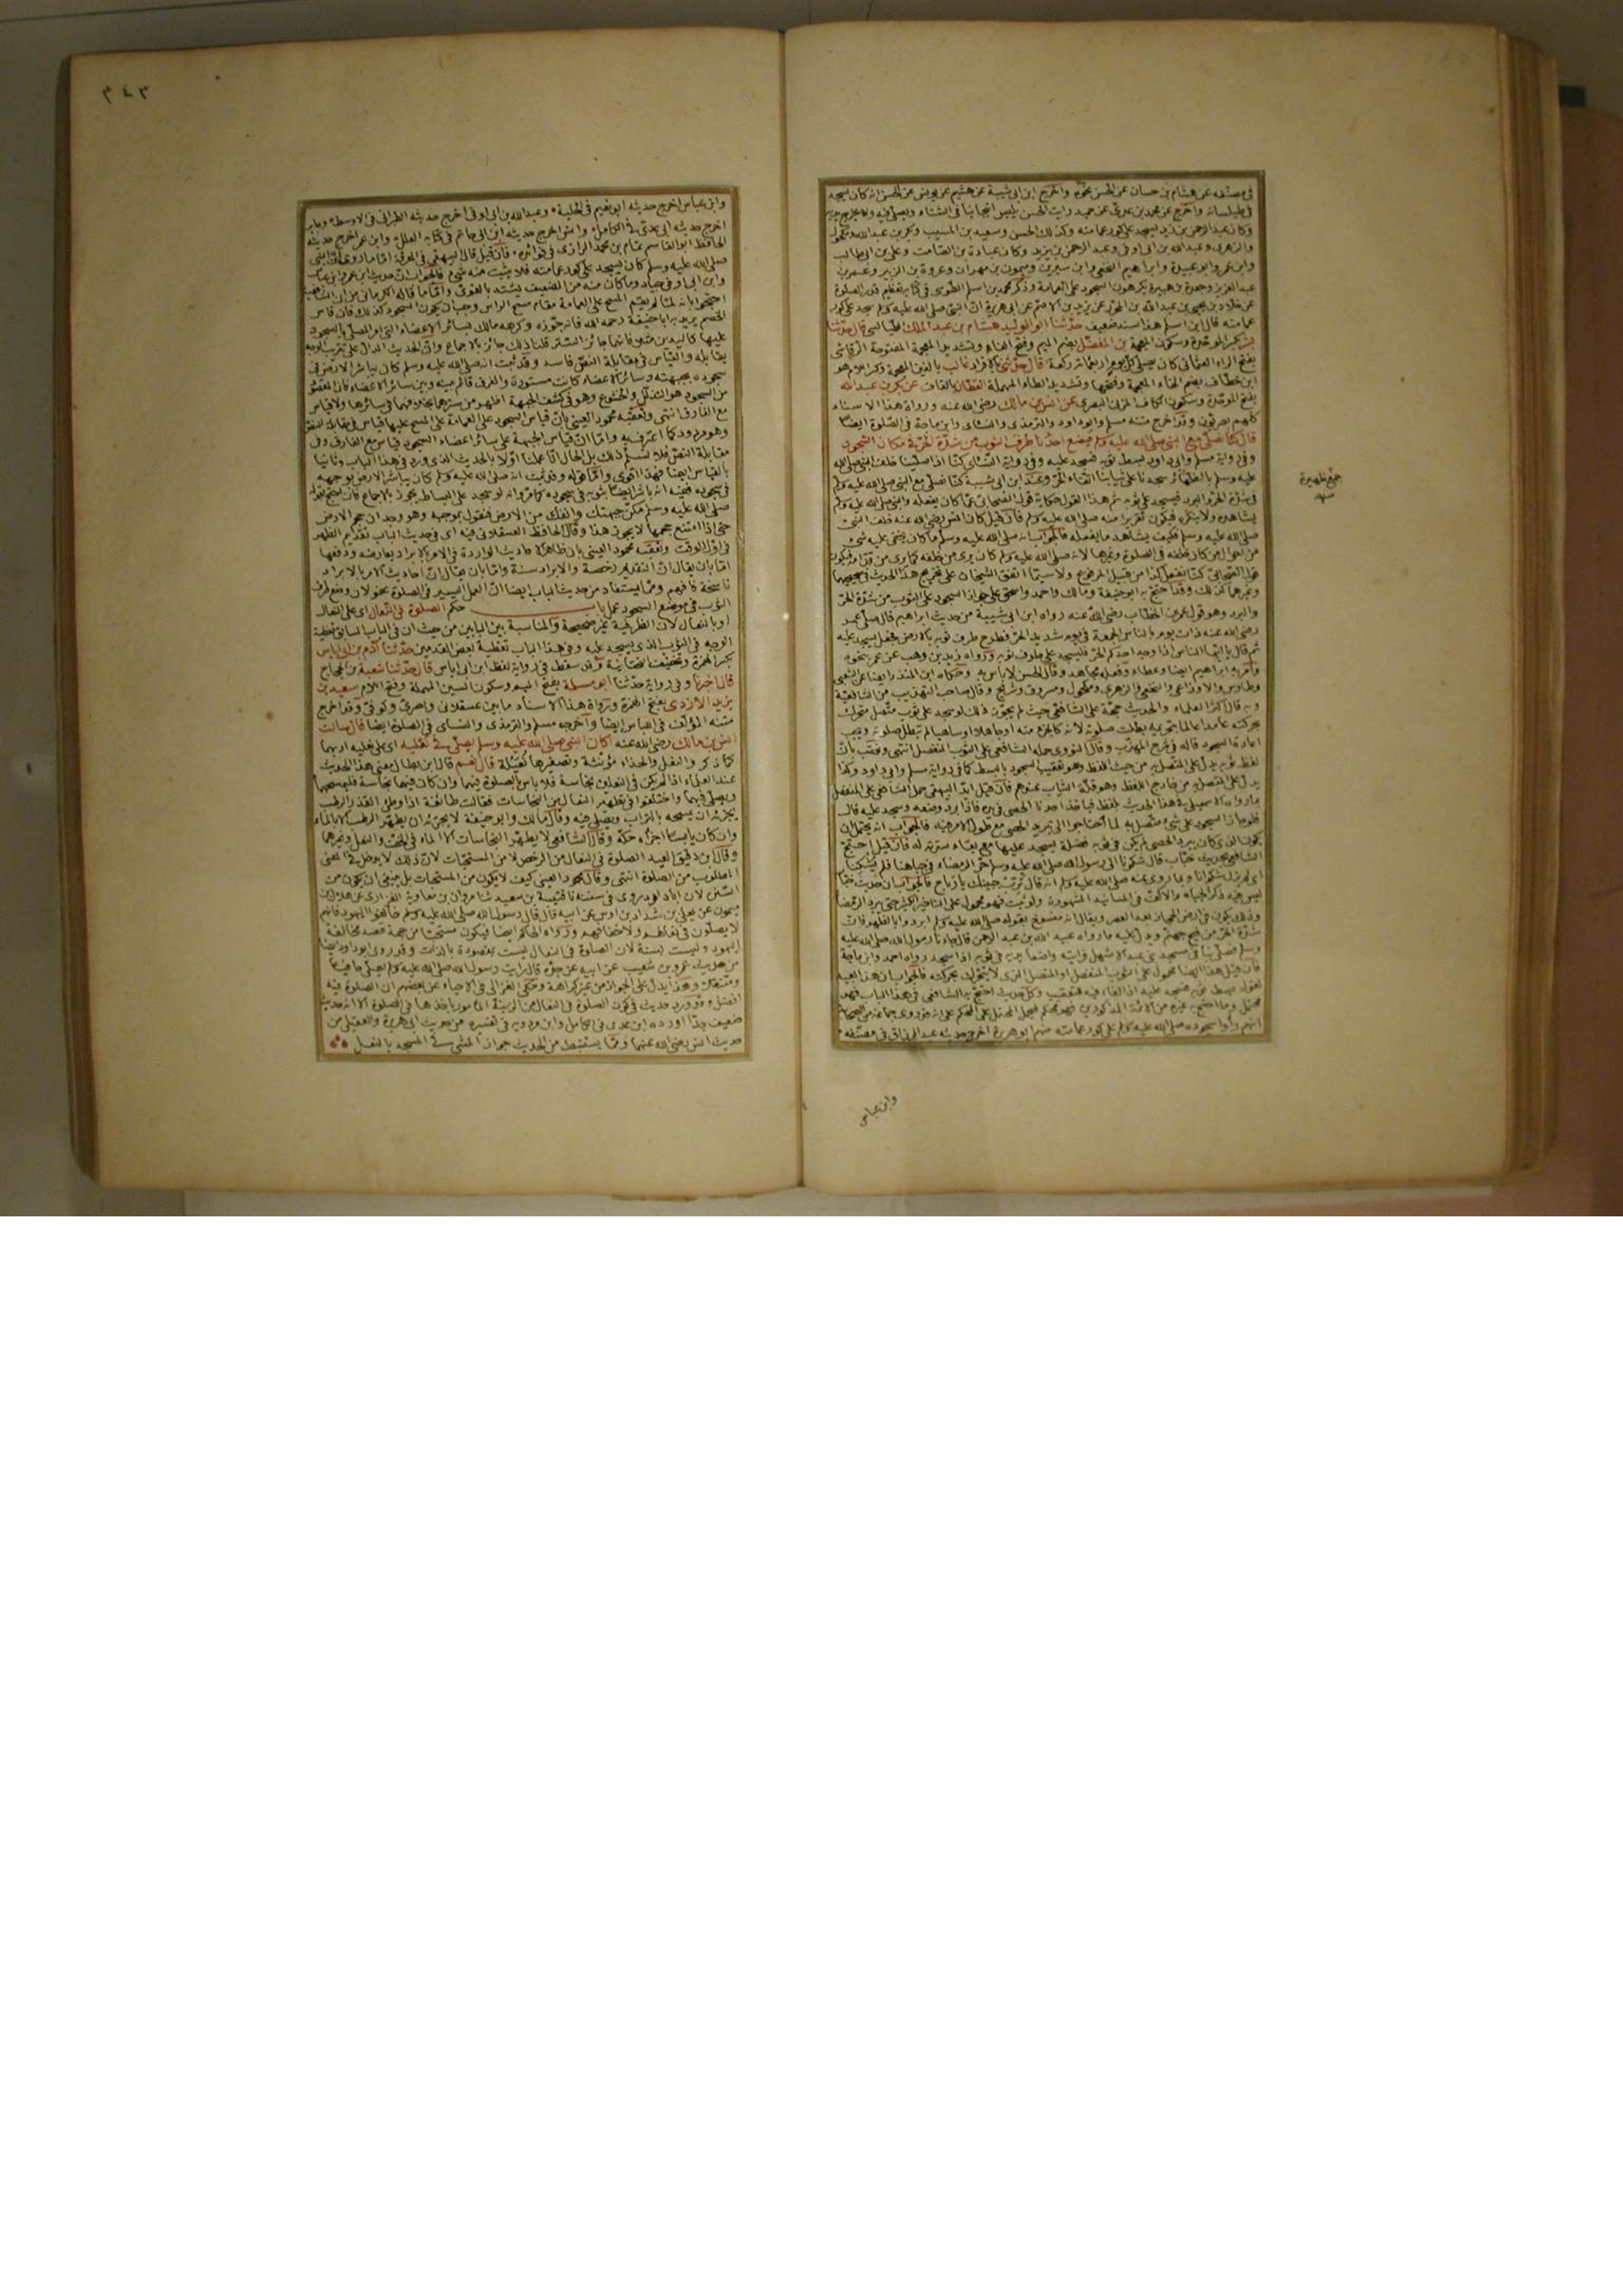 في مصنفه عن هشام بن حسان عن الحسن نحوه واخرج ابن ابي شيبة عن هشيم عن يونس عن الحسن انه كان يسجد
في طيلسانه واخرج عن محمد بن عدي عن حميد رايت الحسن يلبس انبجانيا في الشتاء ويصلي فيه ولا يخرج يديه
وكان عبد الرحمن بن زيد يسجد على كور عمامته وكذلك الحسن وسعيد بن المسيب وبكر بن عبد الله ومكحول
والزهري وعبد الله بن ابي اوفى وعبد الرحمن بن يزيد وكان عبادة بن الصامت وعلي بن ابي طالب
وابن عمر وابو عبيدة وابراهيم النخعي وابن سيرين وميمون بن مهران وعروة بن الزبير وعمر بن
عبد العزيز وجعدة بن هبيرة يكرهون السجود على العمامة وذكر محمد بن اسلم الطوسي في كتابه تعظيم قدر الصلوة
عن خلاد بن يحيى عن عبد الله بن المحرر عن يزيد بن الاصم عن ابي هريرة ان النبي صلى الله عليه وسلم سجد على كور
عمامته قال ابن اسلم هذا سند ضعيف حدثنا ابو الوليد هشام بن عبد الملك الطيالسي قال حدثنا
بشر بكسر الموحدة وسكون المعجمة بن المفضل بضم الميم وفتح الفاء وتشديد المعجمة المفتوحة الرقاشي
بفتح الراء العثماني كان يصلي كل يوم اربعمائة ركعة قال حدثني بالافراد غالب بالغين المعجمة وكسر اللام هو
ابن خطاف بضم الخاء المعجمة وفتحها وتشديد الطاء المهملة القطان بالقاف عن بكر بن عبد الله
بفتح الموحدة وسكون الكاف المزني البصري عن انس بن مالك رضي الله عنه ورواة هذا الاسناد
كلهم بصريون وقد اخرج متنه مسلم وابو داود والترمذي والنسائي وابن ماجة في الصلوة ايضا
قال كنا نصلي مع النبي صلى الله عليه وسلم فيضع احدنا طرف الثوب من شدة الحر في مكان السجود
وفي رواية مسلم وابي داود بسط ثوبه فسجد عليه وفي رواية النسائي كنا اذا صلينا خلف النبي صلى الله
عليه وسلم بالظهائر سجدنا على ثيابنا اتقاء الحر وعند ابن ابي شيبة كنا نصلي مع النبي صلى الله عليه وسلم
في شدة الحر والبرد فيسجد على ثوبه ثم هذا القول حكاية قول الصحابي عما كان يفعله والنبي صلى الله عليه وسلم
يشاهده ولا ينكره فيكون تقريرا منه صلى الله عليه وسلم فان قيل كان انس رضي الله عنه خلف النبي
صلى الله عليه وسلم فكيف يشاهد ما يفعله فالجواب انه صلى الله عليه وسلم ما كان يخفى عليه شيء
من احوال من كان خلفه في الصلوة وغيرها لانه صلى الله عليه وسلم كان يرى من خلفه كما يرى من قدامه فيكون
قول الصحابي كنا نفعل كذا من قبيل المرفوع ولا سيما اتفق الشيخان على تخريج هذا الحديث في صحيحيهما
وغيرهما كذلك وقد احتج به ابو حنيفة ومالك واحمد واسحق على جواز السجود على الثوب من شدة الحر
والبرد وهو قول عمر بن الخطاب رضي الله عنه رواه ابن ابي شيبة من حديث ابراهيم قال صلى عمر
رضي الله عنه ذات يوم بالناس الجمعة في يوم شديد الحر فطرح طرف ثوبه بالارض فجعل يسجد عليه
ثم قال يا ايها الناس اذا وجد احدكم الحر فليسجد على طرف ثوبه ورواه زيد بن وهب عن عمر بنحوه
وامر به ابراهيم ايضا وعطاء وفعله مجاهد وقال الحسن لا باس به وحكاه ابن المنذر ايضا عن الشعبي
وطاوس والاوزاعي والنخعي والزهري ومكحول ومسروق وشريح وقال صاحب التهذيب من الشافعية
وبه قال اكثر العلماء والحديث حجة على الشافعي حيث لم يجوز ذلك لو سجد على ثوب متصل متحرك
بحركته عامدا عالما بتحريمه بطلت صلوته لانه كالجزء منه او جاهلا او ساهيا لم تبطل صلوته ويجب
اعادة السجود قاله في شرح المهذب وقال النووي حمله الشافعي على الثوب المنفصل انتهى وتعقب بان
لفظ ثوبه يدل على المتصل به من حيث اللفظ وهو تعقيب السجود بالبسط كما في رواية مسلم وابي داود وكذا
يدل على المتصل به من خارج اللفظ وهو قلة الثياب عندهم فان قيل ايد البيهقي حمل الشافعي على المنفصل
بما رواه الاسمعيلي في هذا الحديث بلفظ فياخذ احدنا الحصى في يده فاذا برد وضعه وسجد عليه قال
فلو جاز السجود على شيء متصل به لما احتاجوا الى تبريد الحصى مع طول الامر فيه فالجواب انه يحتمل ان
يكون الذي كان يبرد الحصى لم يكن في ثوبه فضلة يسجد عليها مع بقاء سترته له فان قيل احتج
الشافعي بحديث خباب قال شكونا الى رسول الله صلى الله عليه وسلم حر الرمضاء في جباهنا فلم يشكنا
اي لم يزل شكوانا وبما روي عنه صلى الله عليه وسلم انه قال ترب جبينك يا رباح فالجواب ان حديث خباب
ليس فيه ذكر الجباه والاكف في المسانيد المشهورة ولو ثبت فهو محمول على التاخير الكثير حتى يبرد الرمضاء
وذلك يكون في ارض الحجاز بعد العصر ويقال انه منسوخ بقوله صلى الله عليه وسلم ابردوا بالظهر فان
شدة الحر من فيح جهنم ويدل عليه ما رواه عبد الله بن عبد الرحمن قال جاءنا رسول الله صلى الله عليه
وسلم فصلى بنا في مسجد بني عبد الاشهل فرايته واضعا يديه في ثوبه اذا سجد رواه احمد وابن ماجة
فان قيل هذا ايضا محمول على الثوب المنفصل او المتصل الذي لا يتحرك بحركته فالجواب ان هذا بعيد
لقوله بسط ثوبه فسجد عليه اذ الفاء فيه للتعقيب وكل حديث احتج به الشافعي في هذا الباب فهو
محتمل وما احتج به غيره من الائمة المذكورين فهو محكم فيحمل المحتمل على المحكم على انه قد روي جماعة من الصحابة
انهم راوا سجوده صلى الله عليه وسلم على كور عمامته منهم ابو هريرة اخرج حديثه عبد الرزاق في مصنفه
جمع ظهيرة
وابن عباس
٢٤٣
وابن عباس اخرج حديثه ابو نعيم في الحلية وعبد الله بن ابي اوفى اخرج حديثه الطبراني في الاوسط وجابر
اخرج حديثه ابن عدي في الكامل وانس اخرج حديثه ابن ابي حاتم في كتابه العلل وابن عمر اخرج حديثه
الحافظ ابو القاسم تمام بن محمد الرازي في فوائده فان قيل قال البيهقي في المعرفة اما ما روي ان النبي
صلى الله عليه وسلم كان يسجد على كور عمامته فلا يثبت منه شيء فالجواب ان حديث ابن عمر وابن عباس
وابن ابي اوفى جياد وما كان منه من الضعيف يشتد بالقوي واما ما قاله الكرماني من ان الشافعية
احتجوا بانه لما لم يقم المسح على العمامة مقام مسح الراس وجب ان يكون السجود كذلك فان قاس
الخصم يريد به ابا حنيفة رحمه الله فانه جوزه وكرهه مالك بسائر الاعضاء التي امر المصلي بالسجود
عليها كاليدين مثلا فانها جائز التستر قلنا ذلك جائز بالاجماع وان الحديث الدال على تتريب الوجه
يقابله والقياس في مقابلة النص فاسد وقد ثبت انه صلى الله عليه وسلم كان يباشر الارض في
سجوده بجبهته وسائر الاعضاء كانت مستورة والفرق قائم بينه وبين سائر الاعضاء فان المقصود
من السجود هو التذلل والخشوع وهو في كشف الجبهة اظهر من سترها بخلافهما في سائرها ولا قياس
مع الفارق انتهى وتعقبه محمود العيني بان قياس السجود على العمامة على المسح عليها قياس في مقابلة النص
وهو مردود كما اعترف به واما ان قياس الجبهة على سائر اعضاء السجود قياس مع الفارق وفي
مقابلة النص فلا نسلم ذلك بل الحال انا عملنا اولا بالحديث الذي ورد في هذا الباب وثانيا
بالقياس ايضا فهذا اقوى واما قوله وقد ثبت انه صلى الله عليه وسلم كان يباشر الارض بوجهه
في سجوده ففيه انه باشر ايضا بثوبه في سجوده كما مر وانه لو سجد على البساط يجوز بالاجماع فان احتج بقوله
صلى الله عليه وسلم مكن جبهتك وانفك من الارض فنقول بموجبه وهو وجدان حجم الارض
حتى اذا امتنع حجمها لا يجوز هذا وقال الحافظ العسقلاني فيه اي في حديث الباب تقديم الظهر
في اول الوقت وتعقبه محمود العيني بان ظاهر الاحاديث الواردة في الامر بالابراد يعارضه ودفعها
اما بان يقال ان التقديم رخصة والابراد سنة واما بان يقال ان احاديث الامر بالابراد
ناسخة فافهم ومما يستفاد من حديث الباب ايضا ان العمل اليسير في الصلوة عفو لان وضع طرف
الثوب في موضع السجود عمل باب حكم الصلوة في النعال اي على النعال
او بالنعال لان الظرفية غير صحيحة والمناسبة بين البابين من حيث ان في الباب السابق تغطية
الوجه في الثوب الذي يسجد عليه وفي هذا الباب تغطية بعض القدمين حدثنا آدم بن ابي اياس
بكسر الهمزة وتخفيف التحتانية وقد سقط في رواية لفظ ابن ابي اياس قال حدثنا شعبة بن الحجاج
قال اخبرنا وفي رواية حدثنا ابو مسلمة بفتح الميم وسكون السين المهملة وفتح اللام سعيد بن
يزيد الازدي بفتح الهمزة ورواة هذا الاسناد ما بين عسقلاني وبصري وكوفي وقد اخرج
متنه المؤلف في اللباس ايضا واخرجه مسلم والترمذي والنسائي في الصلوة ايضا قال سالت
انس بن مالك رضي الله عنه اكان النبي صلى الله عليه وسلم يصلي في نعليه اي على نعليه او بهما
كما ذكر والنعل والحذاء مؤنثة وتصغيرها نعيلة قال نعم قال ابن بطال معنى هذا الحديث
عند العلماء اذا لم يكن في النعلين نجاسة فلا باس بالصلوة فيهما وان كان فيهما نجاسة فليمسحهما
ويصلي فيهما واختلفوا في تطهير النعال من النجاسات فقالت طائفة اذا وطئ القذر الرطب
يجزئه ان يمسحه بالتراب ويصلي فيه وقال مالك وابو حنيفة لا يجزئه ان يطهر الرطب الا بالماء
وان كان يابسا اجزاه حكه وقال الشافعي لا يطهر النجاسات الا الماء في الخف والنعل وغيرهما
وقال ابن دقيق العيد الصلوة في النعال من الرخص لا من المستحبات لان ذلك لا يدخل في المعنى
المطلوب من الصلوة انتهى وقال محمود العيني كيف لا يكون من المستحبات بل ينبغي ان يكون من
السنن لان ابا داود روى في سننه نا قتيبة بن سعيد ثنا مروان بن معاوية الفزاري عن هلال بن
ميمون عن يعلى بن شداد بن اوس عن ابيه قال قال رسول الله صلى الله عليه وسلم خالفوا اليهود فانهم
لا يصلون في نعالهم ولا خفافهم ورواه الحاكم ايضا فيكون مستحبا من جهة قصد مخالفة
اليهود وليست بسنة لان الصلوة في النعال ليست بمقصودة بالذات وقد روى ابو داود ايضا
من حديث عمرو بن شعيب عن ابيه عن جده قال رايت رسول الله صلى الله عليه وسلم يصلي حافيا
ومتنعلا وهذا يدل على الجواز من غير كراهة وحكى الغزالي في الاحياء عن بعضهم ان الصلوة فيه
افضل وقد ورد حديث في كون الصلوة في النعال من الزينة المامور باخذها في الصلوة الا انه حديث
ضعيف جدا اورده ابن عدي في الكامل وابن مردويه في تفسيره من حديث ابي هريرة والعقيلي من
حديث انس رضي الله عنهما ومما يستنبط من الحديث جواز المشي في المسجد بالنعل